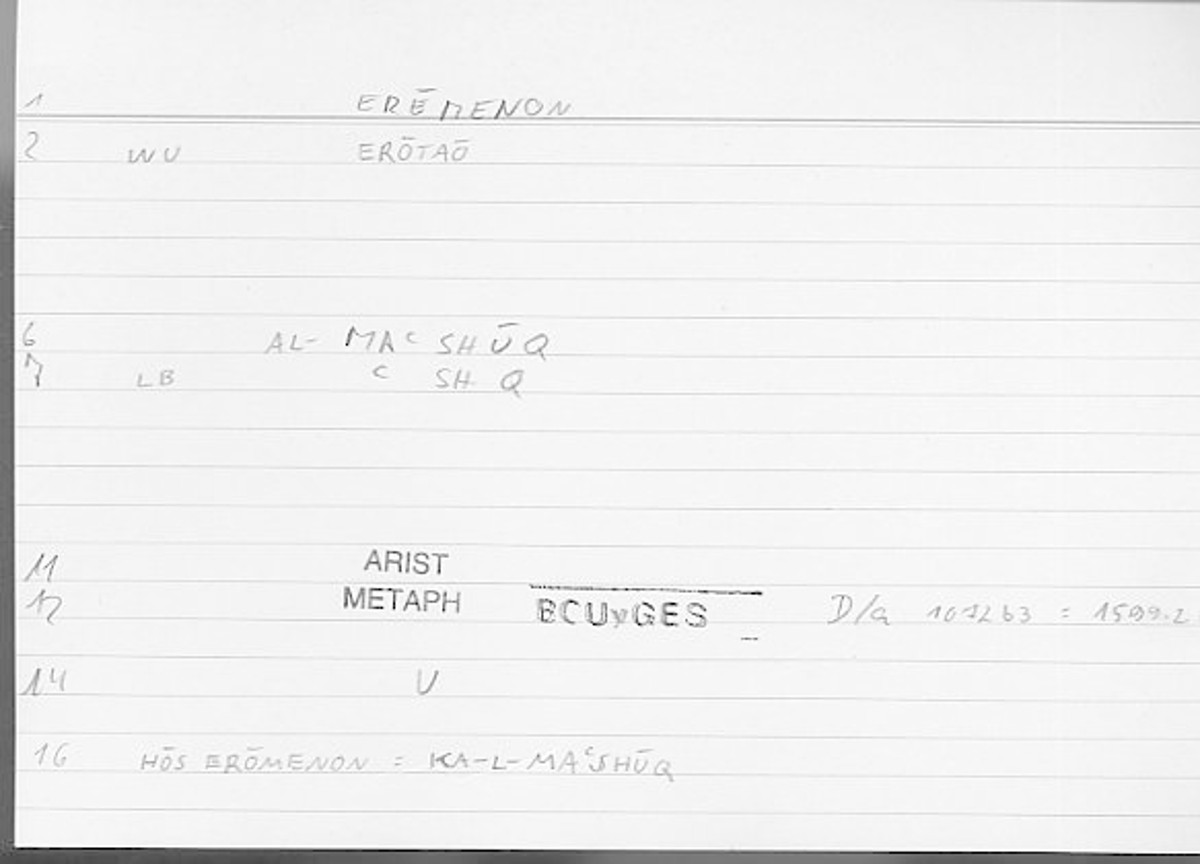 1 ERĒMENON
2 WU ERŌTAŌ
6 AL- MAᶜ SHŪQ
7 LB ᶜ SH Q
11 ARIST
12 METAPH BOUyGES D/a 1072b3 = 1599.2
14 U
16 HŌS ERŌMENON = KA-L-MAᶜSHŪQ